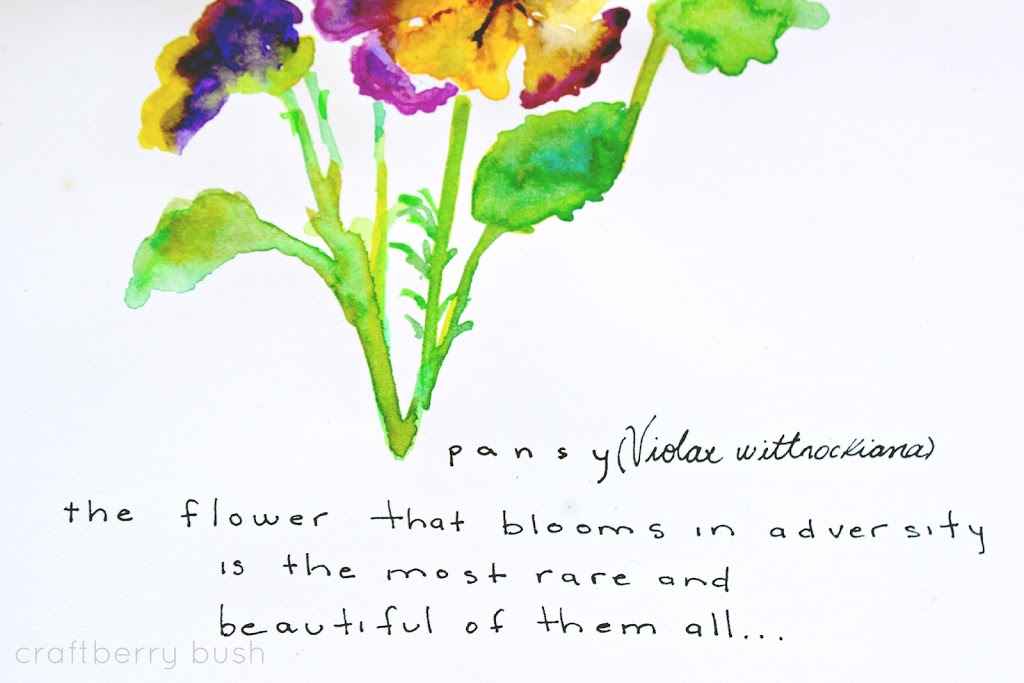 pansy (Violax wittrockiana)
the flower that blooms in adversity
is the most rare and
beautiful of them all...
craftberry bush